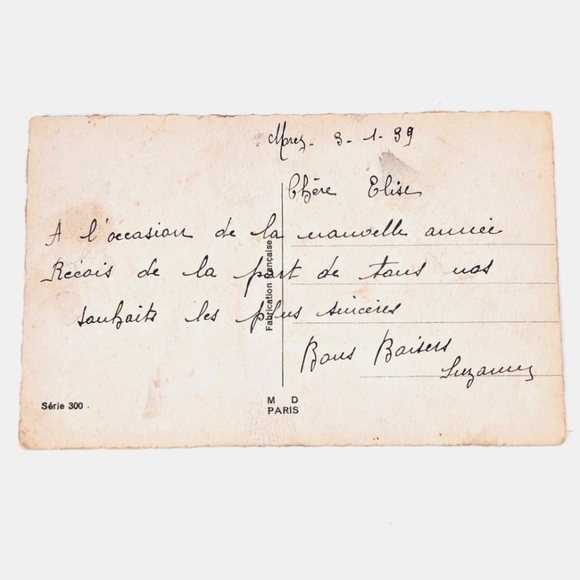 Morez 3-1-39
Chère Elise
A l'occasion de la nouvelle année
Recois de la part de tous nos
souhaits les plus sincères
Bons Baisers
Suzanne
Fabrication Française
Série 300
M D
PARIS